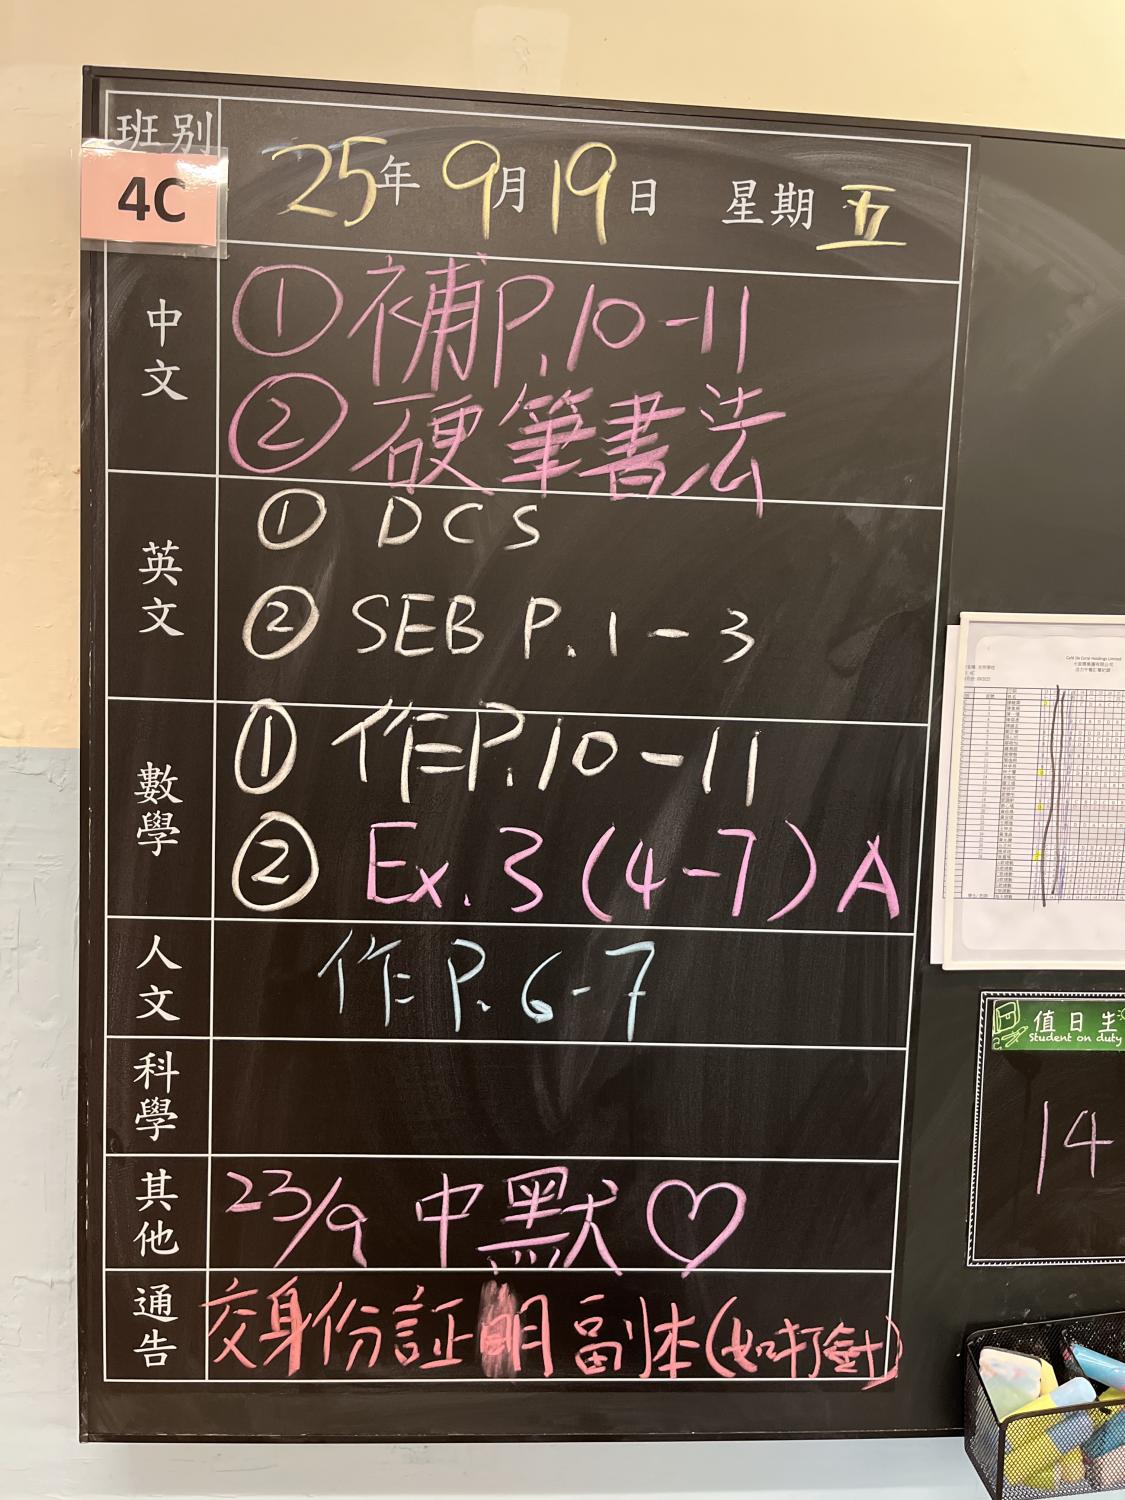 班別
4C
25年 9月 19日 星期 五
中文
① 補P.10-11
② 硬筆書法
英文
① DCS
② SEB P.1-3
數學
① 作P.10-11
② Ex.3(4-7)A
人文
作P.6-7
科學
其他
23/9 中默♡
通告
交身份証明副本(如打針)
Café de Coral Holdings Limited
值日生
Student on duty
14